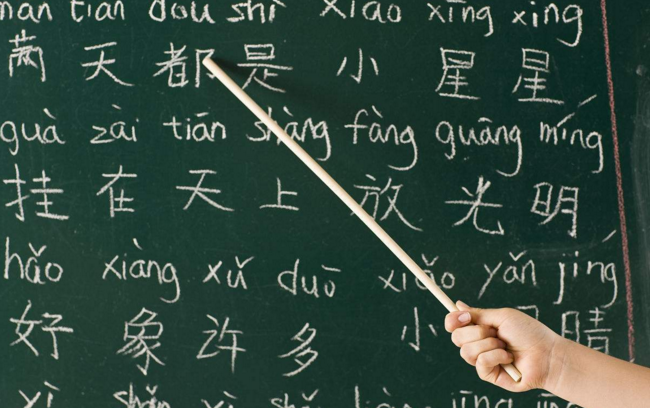 mǎn tiān dōu shì xiǎo xīng xing
满 天 都 是 小 星 星
guà zài tiān shàng fàng guāng míng
挂 在 天 上 放 光 明
hǎo xiàng xǔ duō xiǎo yǎn jīng
好 象 许 多 小 晴
yì